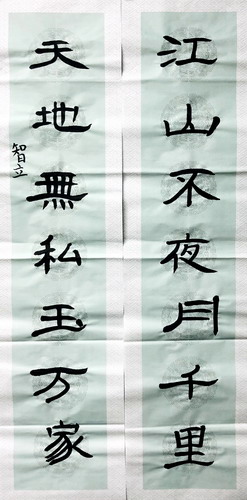 江山不夜月千里
天地無私玉万家
智立